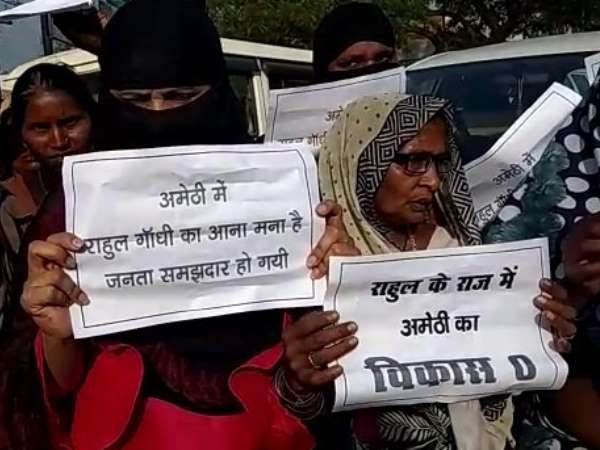 अमेठी में
राहुल गॉधी का आना मना है
जनता समझदार हो गयी
राहुल के राज में
अमेठी का
विकास 0
अमेठी में
राहुल गॉधी
अमेठी में